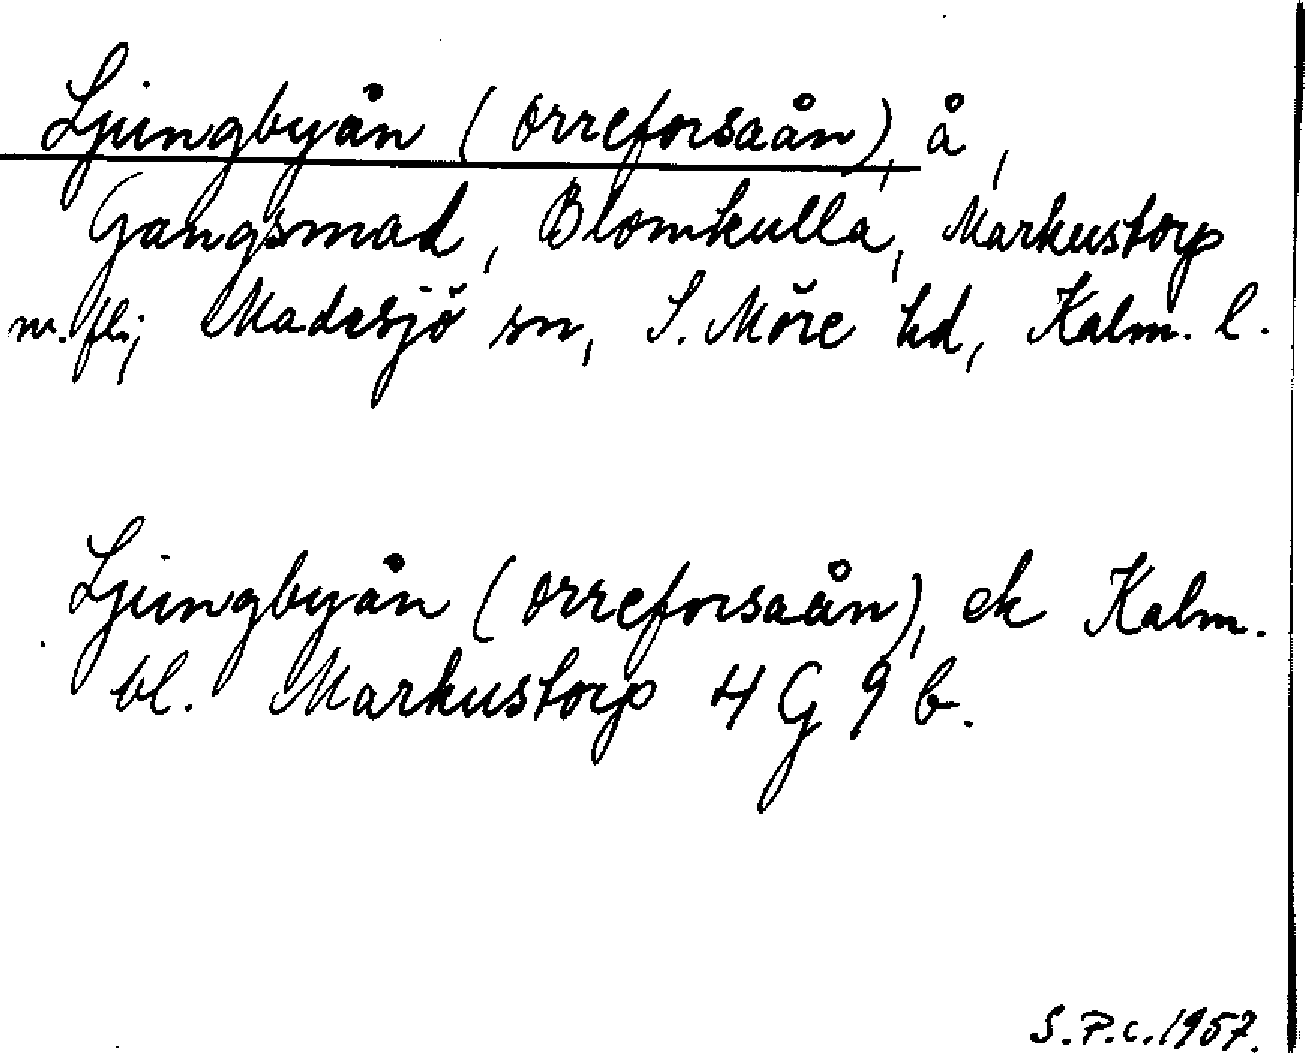 Ljungbyån (Orreforsaån), å,
Gangsmad, Blomkulla, Markustorp
m. fl.; Madesjö sn, S. Möre hd, Kalm. l.
Ljungbyån (Orreforsaån), ek Kalm.
bl. Markustorp 4 G 9 b.
S.P.C. 1957.